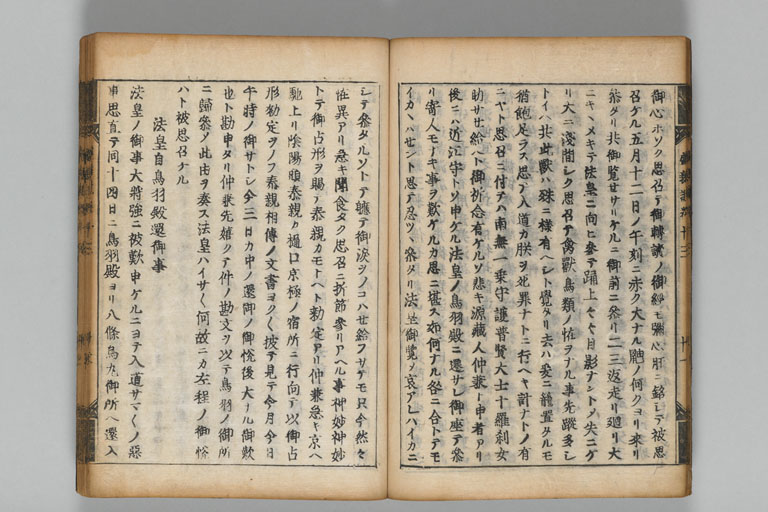 御心ホソク思召テ御轉讀ノ御経モ弥心肝ニ銘シテ被思
召ケル五月十二日ノ午刻ニ赤ク大ナル鼬ノ何クヨリ來リ
参タリ共御覧セサリケルニ御前ニ参リ二三返走リ廻リ大
ニキヽメキテ法皇ニ向ヒ参テ踊上々々目影ナントシメ失ニケ
リ大ニ淺間シク思召テ禽獣鳥類ノ怪ヲナル事先蹤多シ
トイヘ共此獣ハ殊ニ様有ヘシト覺タリ去ハ爰ニ籠置タルモ
猶飽足ラス思テ入道カ朕ヲ死罪ナトニ行ヘキ計ナトノ有
ニヤト思召ニ付テハ南無一乗守護普賢大士十羅刹女
助サセ給ヘト御祈念有ケルソ悲キ源蔵人仲兼ト申者アリ
後ニハ近江守トソ申ケル法皇ノ鳥羽殿ニ遷サレ御座テ参
リ寄人モナキ事ヲ歎ケルカ思ニ堪ス如何ナル咎ニ合トテモ
イカヽハセント思テ忍ツヽ参タリ法皇御覧シ哀アレハイカニ
シテ参タルソトテ轉テ御涙ヲノコハセ給フサテモ只今然々
怪異アリ急キ聞食タク思召ニ折節参リアヘル事神妙神妙
トテ御占形ヲ賜テ泰親カモトヘト勅定アリ仲兼急キ京ヘ
馳上リ陰陽頭泰親カ樋口京極ノ宿所ニ行向テ以御占
形勅定ヲノフ泰親相傳ノ文書ヨクヽ披テ見テ今月今日
午時ノ御サトシ今三日カ中ノ還御ノ御悦後大ナル御歎
也ト勘申タリ仲兼先嬉クテ件ノ勘文ヲ以テ鳥羽ノ御所
ニ歸参ソ此由ヲ奏ス法皇ハイサヽ何故ニカ左程ノ御悦
ハト被思召ケル
法皇自鳥羽殿還御事
法皇ノ御事大将強ニ被歎申ケルニヨテ入道サマヽノ惡
事思直テ同十四日ニ鳥羽殿ヨリ八條烏丸御所ヘ還入